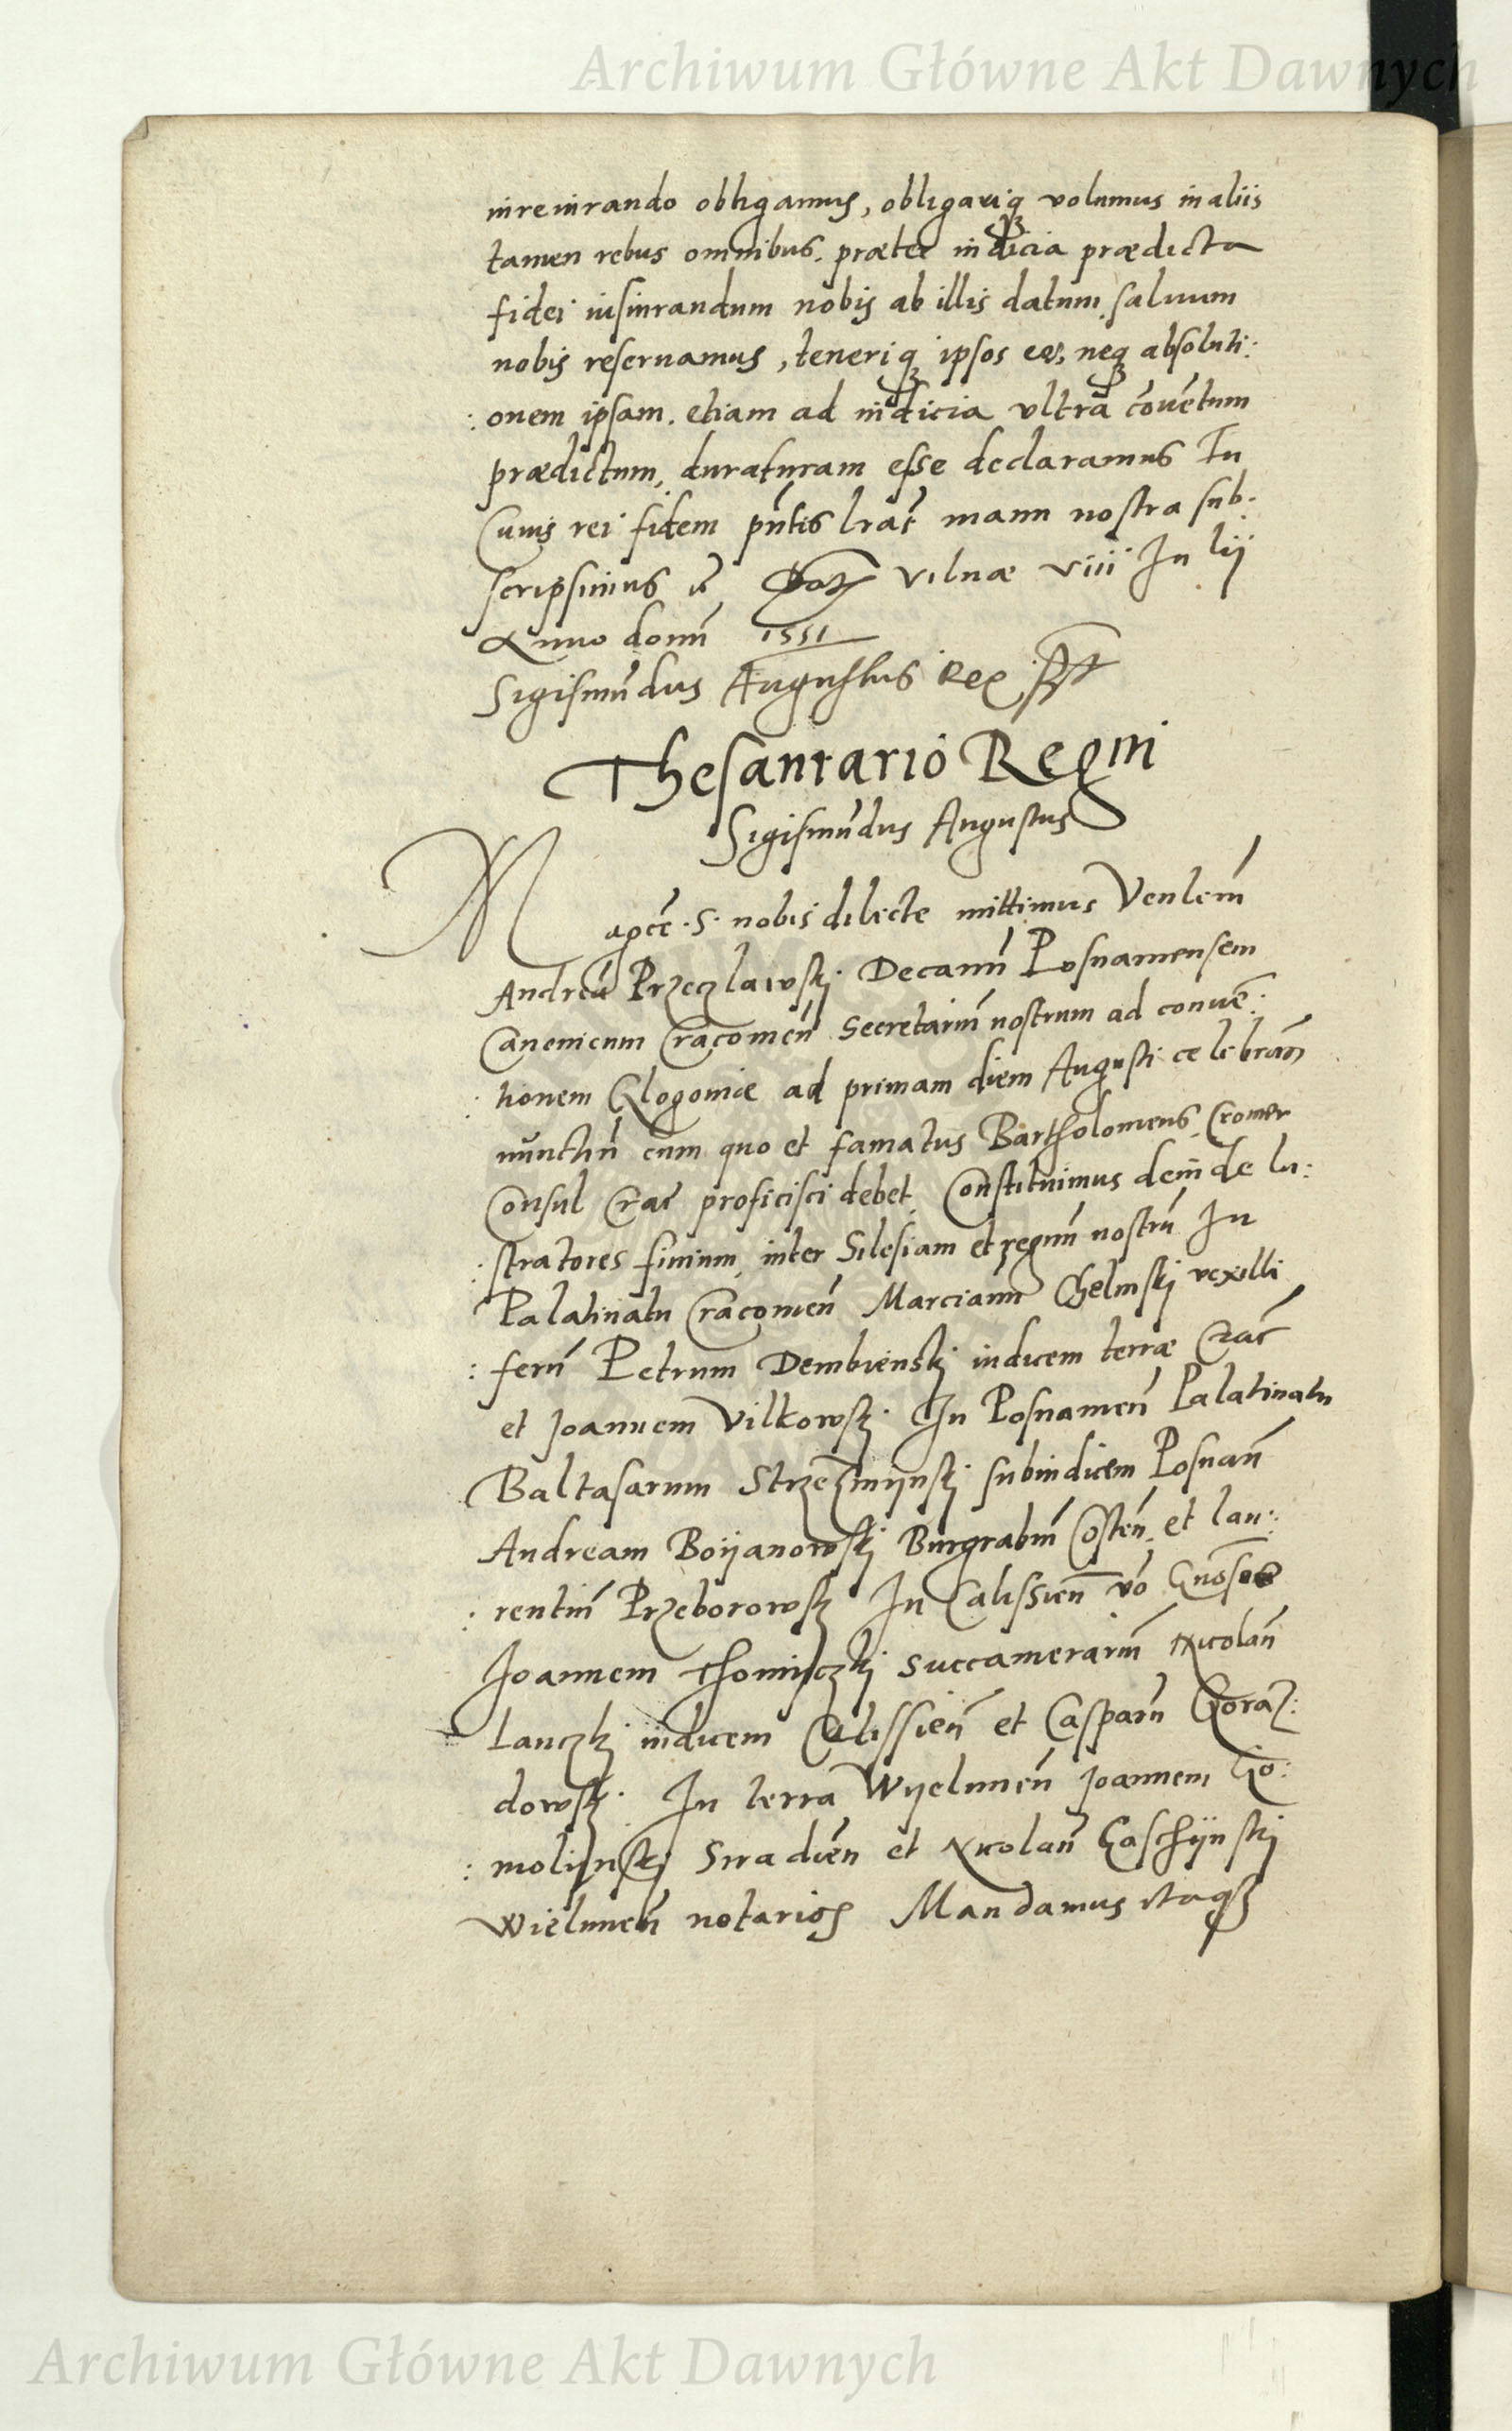 Archiwum Główne Akt Dawnych
iureiurando obligamus, obligariq volumus in aliis
tamen rebus omnibus. præter iudicia prædicta
fidei iusiurandum nobis ab illis datum saluum
nobis reseruamus, teneriq ipsos eo, neq absoluti:
: onem ipsam. etiam ad iudicia ultra cōuētum
prædictum, duraturam esse declaramus In
Cuius rei fidem pñtis lrās manu nostra sub:
scripsimus Dat Vilnæ viii Iulij
Anno domī 1551
Sigismūdus Augustus Rex sst
Thesaurario Regni
Sigismūdus Augustus
Magcē. S. nobis dilecte mittimus Venlem̄
Andreā Przeczlawskj Decanū Posnaniensem
Canonicum Cracouieñ Secretariū nostrum ad conuē:
: tionem Glogouiæ ad primam diem Augusti celebrañ
nūctiū cum quo et famatus Bartholomeus Cromer
Consul Crac̄ proficisci debet. Constituimus deinde lu:
: stratores finium, inter Silesiam et regnū nostrū In
Palatinatu Cracouieñ Marcianū Chelmskj vexilli
: ferū Petrum Dembienskj iudicem terræ Crac̄
et Joannem Vilkowskj. In Posnanieñ Palatinatu
Baltasarum Strzezmijnskj subiudicem Posnañ
Andream Boijanowskj Burgrabiū Costeñ. et Lau:
: rentiū Przeborowskj In Calissieñ vō Gnosos
Joannem Thomiczkj Succamerariū Nicolaū
Lanczkj iudicem Calissieñ et Casparū Goraz:
dowskj. In terra Wijeluneñ Joannem Go:
: molijnskj Siradieñ et Nicolaū Gaschijnskj
Wieluneñ notarios Mandamus itaq
Archiwum Główne Akt Dawnych